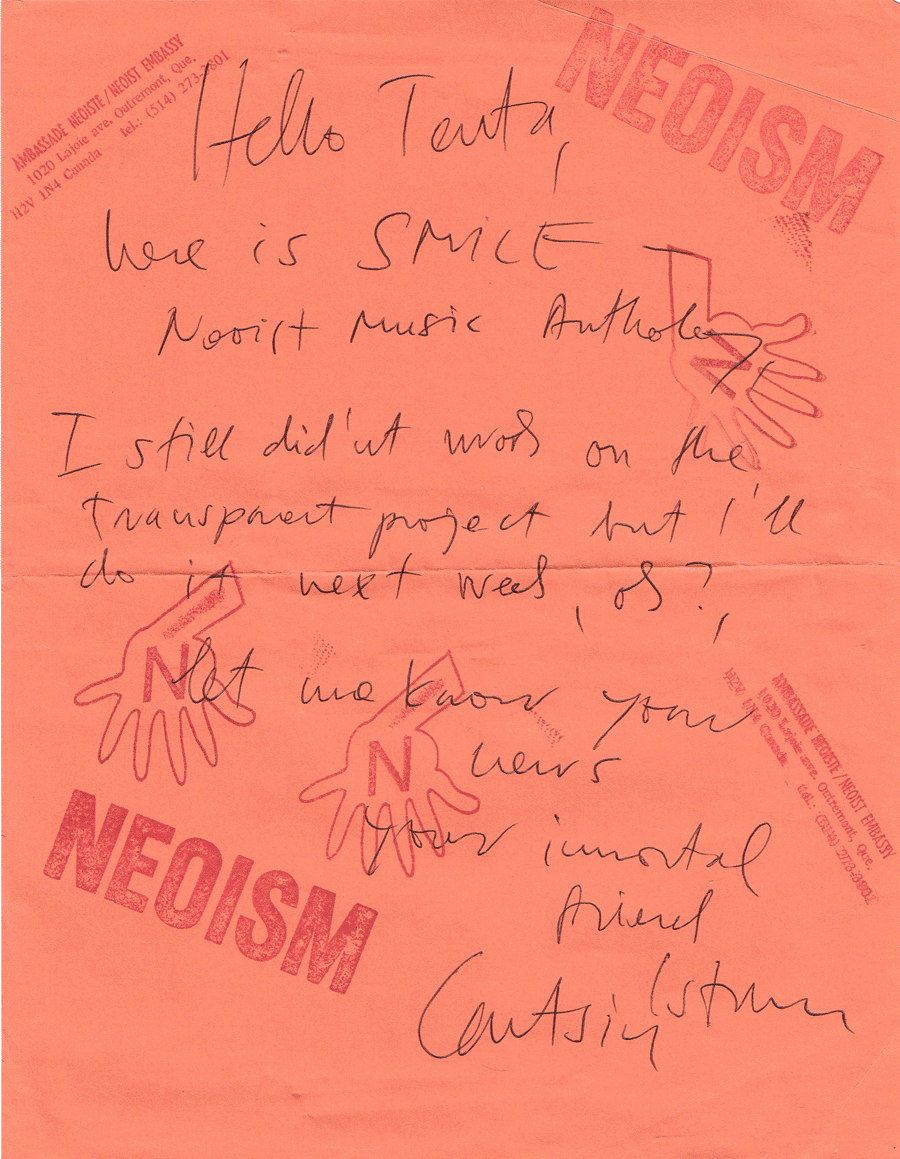 AMBASSADE NEOISTE/NEOIST EMBASSY
1020 Lajoie ave. Outremont, Que.
H2V 1N4 Canada tel.: (514) 273-3801
NEOISM
Hello Tenta,
here is SMILE –
Neoist Music Anthology,
N
I still did'nt work on the
transparent project but I'll
do it next week, ok?,
N
let me know your
N
news
AMBASSADE NEOISTE/NEOIST EMBASSY
1020 Lajoie ave. Outremont, Que.
H2V 1N4 Canada - tel.: (514) 273-3801
NEOISM
your immortal
friend
Cantsin Istvan